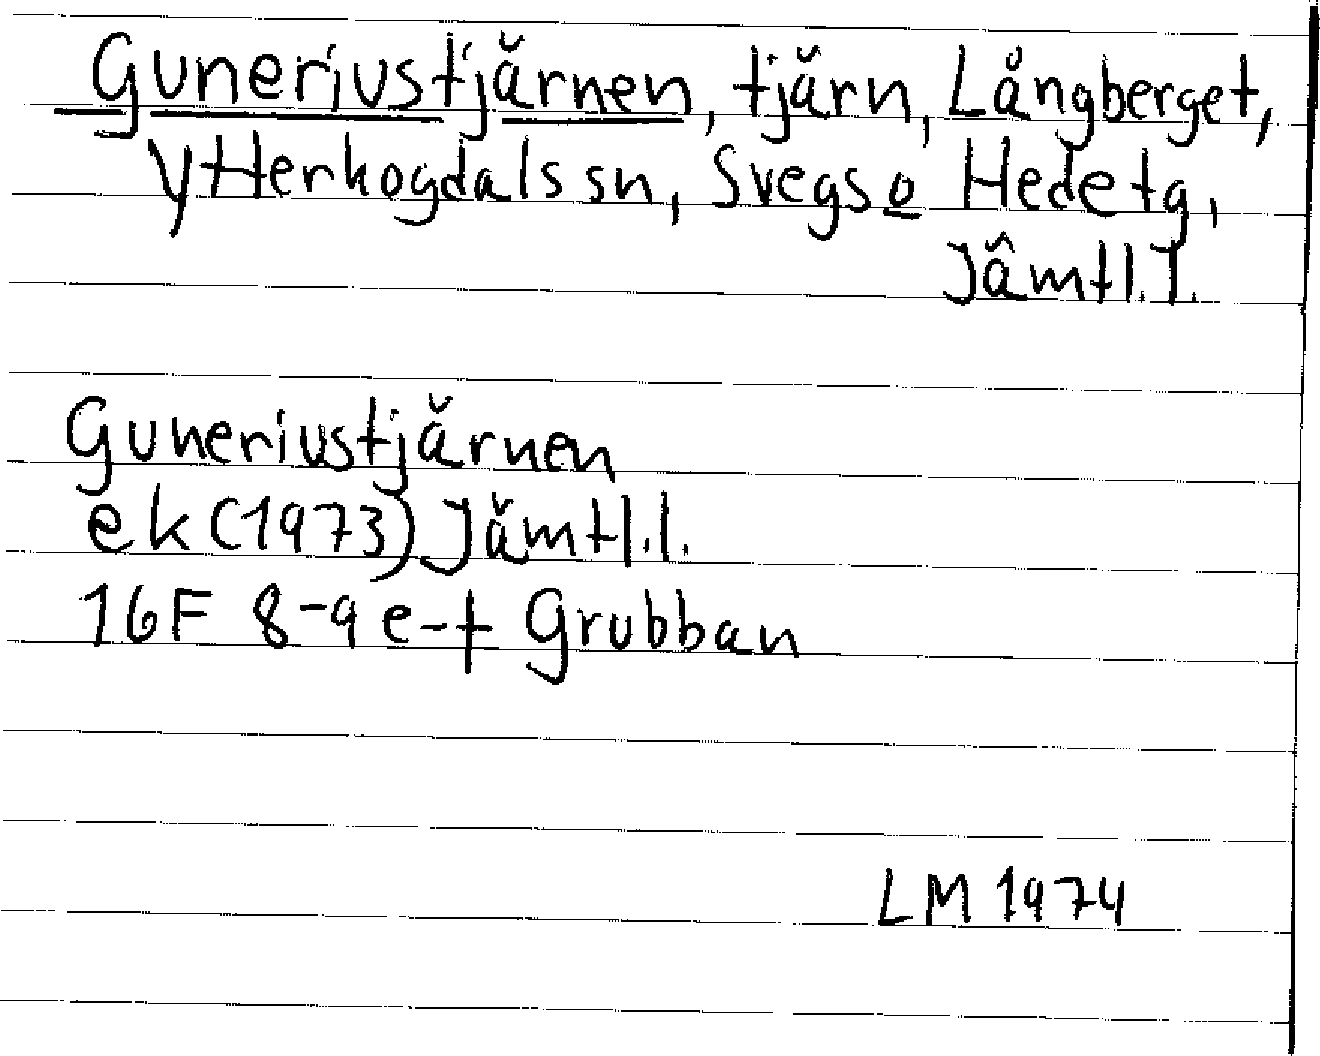 Guneriustjärnen, tjärn, Långberget,
Ytterhogdals sn, Svegs o Hede tg,
Jämtl. l.
Guneriustjärnen
ek (1973) Jämtl.l.
16F 8-9 e-f Grubban
LM 1974